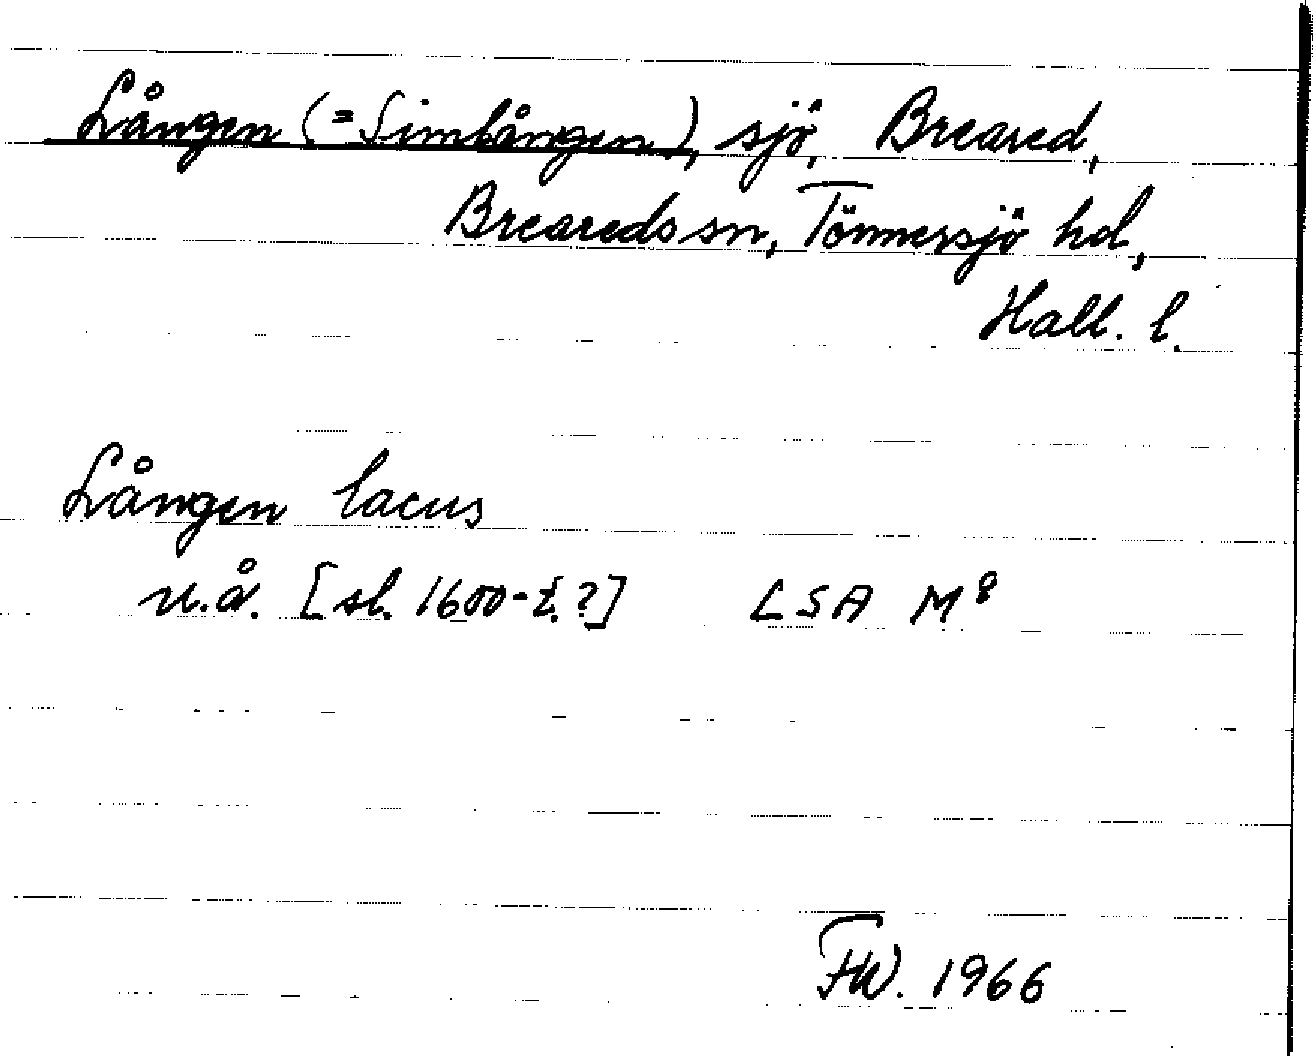 Lången (=Simlången), sjö, Breared,
Breareds sn, Tönnersjö hd,
Hall. l.
Lången lacus
u.å. [sl. 1600-t.?] LSA M⁸
FW. 1966